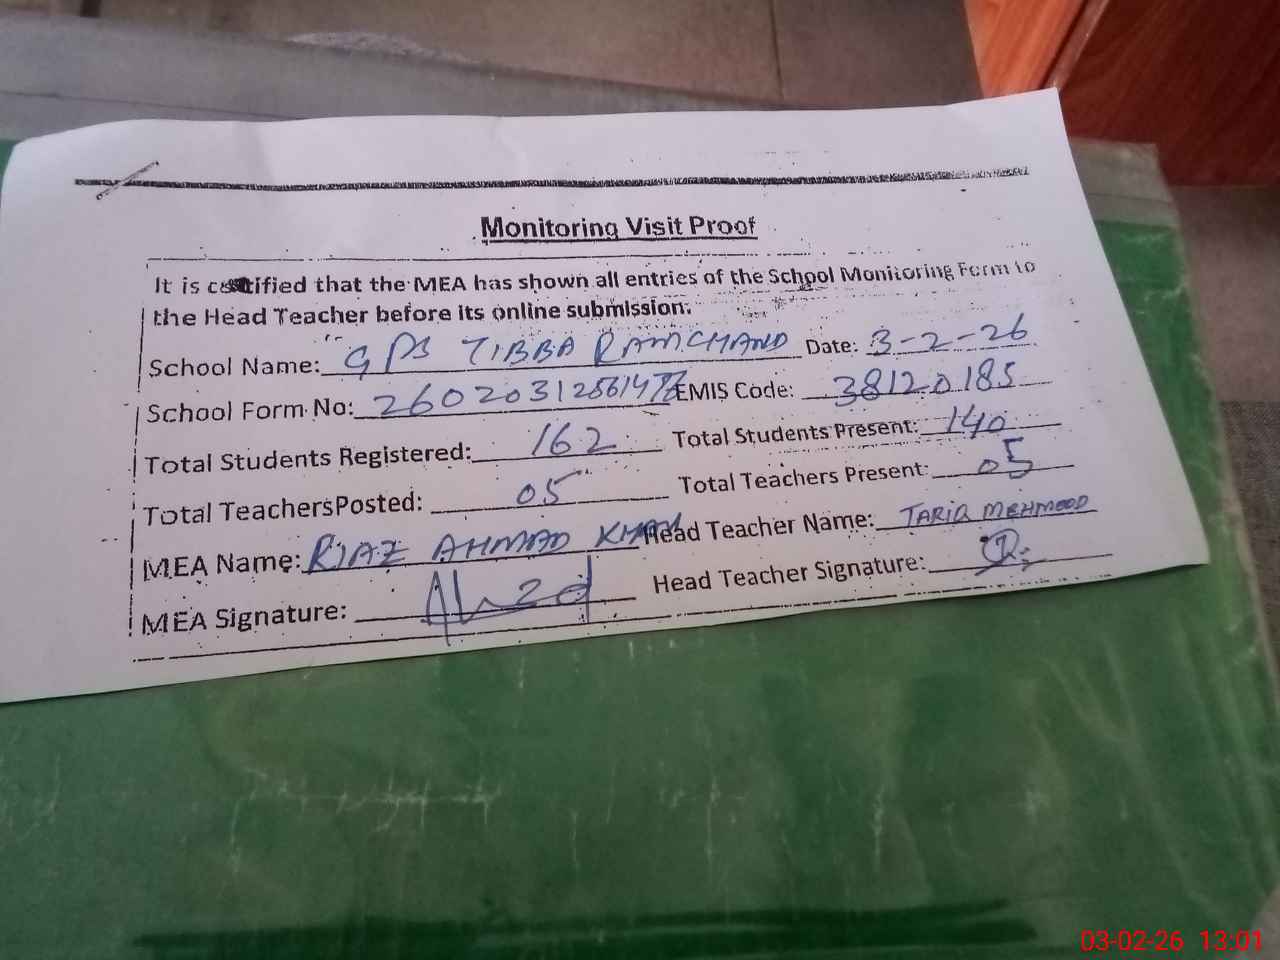 Monitoring Visit Proof
It is certified that the MEA has shown all entries of the School Monitoring Form to
the Head Teacher before its online submission.
School Name: GPS TIBBA RAMCHAND Date: 3-2-26
School Form No: EMIS Code: 38120185
Total Students Registered: 162 Total Students Present: 140
Total TeachersPosted: 05 Total Teachers Present: 05
MEA Name: RIAZ AHMAD KHAN Head Teacher Name: TARIQ MEHMOOD
MEA Signature: Head Teacher Signature:
03-02-26 13:01